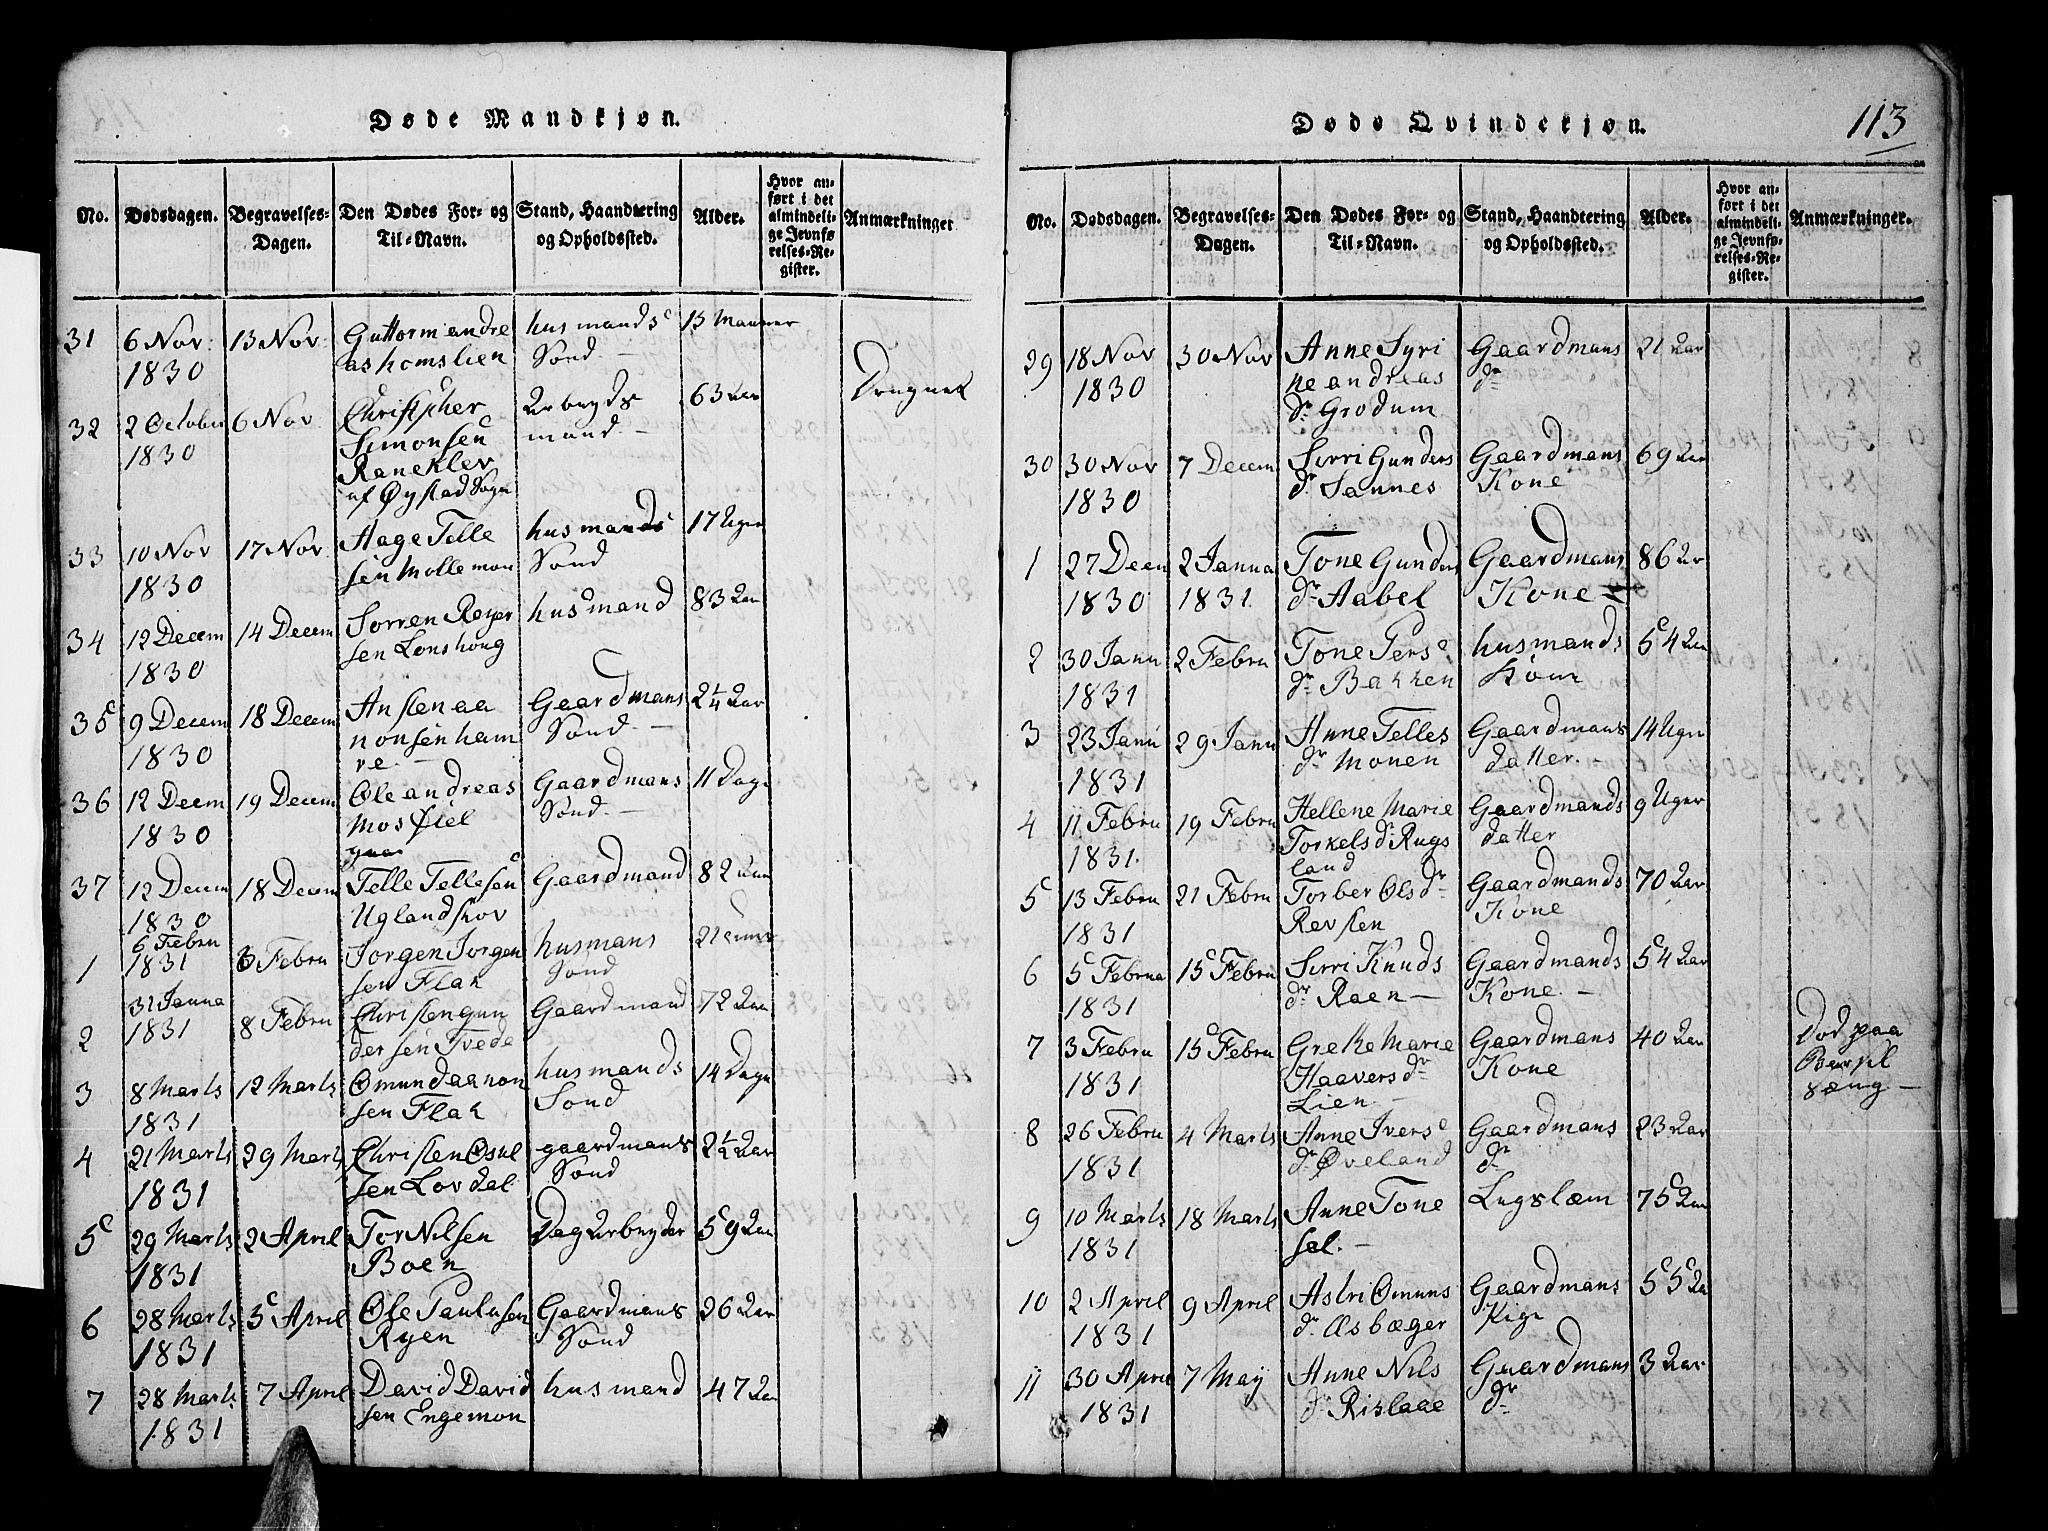 Døde Mandkjøn.
No.
Dødsdagen.
Begravelses-
Dagen.
Den Dødes For- og
Til-Navn.
Stand, Haandtering
og Opholdssted.
Alder.
Hvor an-
ført i det
almindeli-
ge Jevnfø-
relses-Re-
gister.
Anmærkninger
31 6 Nov 13 Nov Guttorm andre husmands 15 Maaneer
1830 as homslien Sønd
32 2 October 6 Nov Christpher Arbeyds 63 Aar Drugnet
1830 Simonsen mand
Raneklev
af Øystad Sogn
33 10 Nov 17 Nov Aage Telle husmands 17 Uger
1830 sen Mollemon Sønd
34 12 Decem 14 Decem Sorren Reyer husmand 83 Aar
1830 sen Lonshoug
35 9 Decem 18 Decem Anslen aa Gaardmans 2¼ Aar
1830 nonsen ham Sønd
re
36 12 Decem 19 Decem Ole andreas Gaardmans 11 Dage
1830 Mosfiel Sønd
37 12 Decem 18 Decem Telle Tellesen Gaardmand 82 Aar
1830 Uglandskov
1 6 Febru 3 Febru Jorgen Jorgen husmans 21 Aar
1831 sen Flak Sønd
2 31 Janua 8 Febru Christen gun Gaardmand 72 Aar
1831 dersen Tvede
3 8 Marts 12 Marts Omund aanon husmands 14 Dage
1831 sen Flak Sønd
4 21 Marts 29 Marts Christen Osul gaardmans 2½ Aar
1831 sen Lovdal Sønd
5 29 Marts 2 April Tor Nilsen Dag Arbeyder 59 Aar
1831 Boen
6 28 Marts 5 April Ole Paulusen Gaardmans 26 Aar
1831 Ryen Sønd
7 28 Marts 7 April David David husmand 47 Aar
1831 sen Engemon
Døde Qvindekjøn.
113
No.
Dødsdagen.
Begravelses-
Dagen.
Den Dødes For- og
Til-Navn.
Stand, Haandtering
og Opholdssted.
Alder.
Hvor an-
ført i det
almindeli-
ge Jevnfø-
relses-Re-
gister.
Anmærkninger.
29 18 Nov 30 Nov Anne Syri Gaardmans 21 Aar
1830 ne andreas dr
dr Grodum
30 30 Nov 7 Decem Sirri Gunders Gaardmans 69 Aar
1830 dr Sannes Kone
1 27 Deen 2 Janua Tone Gunders Gaardmans 86 Ar
1830 1831. dr Aabel Kone
2 30 Janu 2 Febru Tone Pers husmands 54 Aar
1831 dr Bakken Kone
3 23 Janu 29 Janu Anne Telles Gaardmans 14 Uger
1831 dr Monen datter
4 11 Febru 19 Febru Hellene Marie Gaardmands 9 Uger
1831. Torkels dr Rugs datter
land
5 13 Febru 21 Febru Torber Ols dr Gaardmands 70 Aar
1831 Revslen Kone
6 5 Februa 15 Febru Sirri Knuds Gaardmands 54 Aar
1831 dr Raen Kone
7 3 Febru 15 Febru Grethe Marie Gaardmans 40 Aar Dod paa
1831 Haavers dr Kone Barsel
Lien sæng
8 26 Febru 4 Marts Anne Ivers Gaardmans 23 Aar
1831 dr Øveland dr
9 10 Marts 18 Marts Anne Tone Legslæm 75 Aar
1831 sel.
10 2 April 9 April Astri Omuns Gaardmans 55 Aa
1831 dr Æsbæger Kige
11 30 April 7 May Anne Nils Gaardmans 3 Aar
1831 dr Rislaae dr